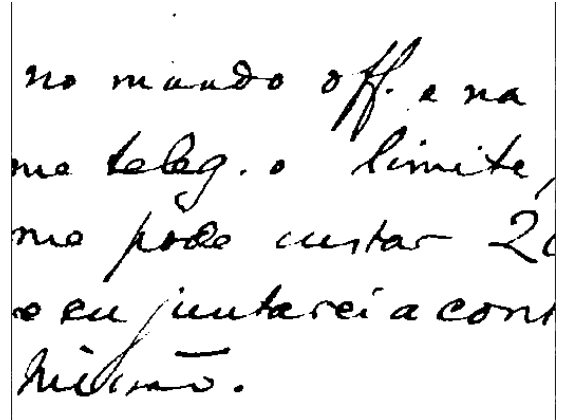 no mundo off. e na
me teleg. o limite,
me pode custar 20
e eu juntarei a cont